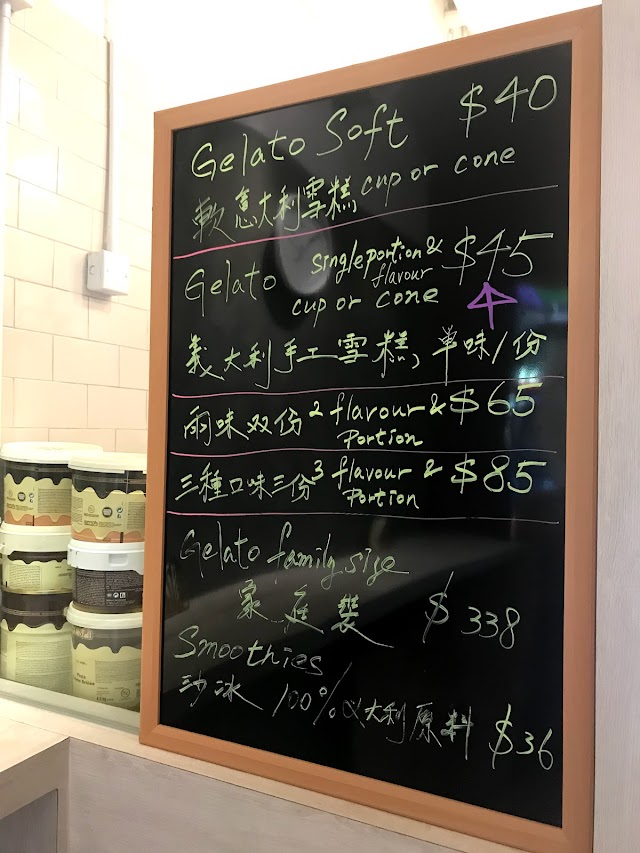 Gelato Soft $40
軟意大利雪糕 cup or cone
Gelato single portion & flavour $45
cup or cone
義大利手工雪糕, 單味/份
兩味双份 2 flavour & Portion $65
三種口味三份 3 flavour & Portion $85
Gelato family size
家庭裝 $338
Smoothies
沙冰 100% 意大利原料 $36